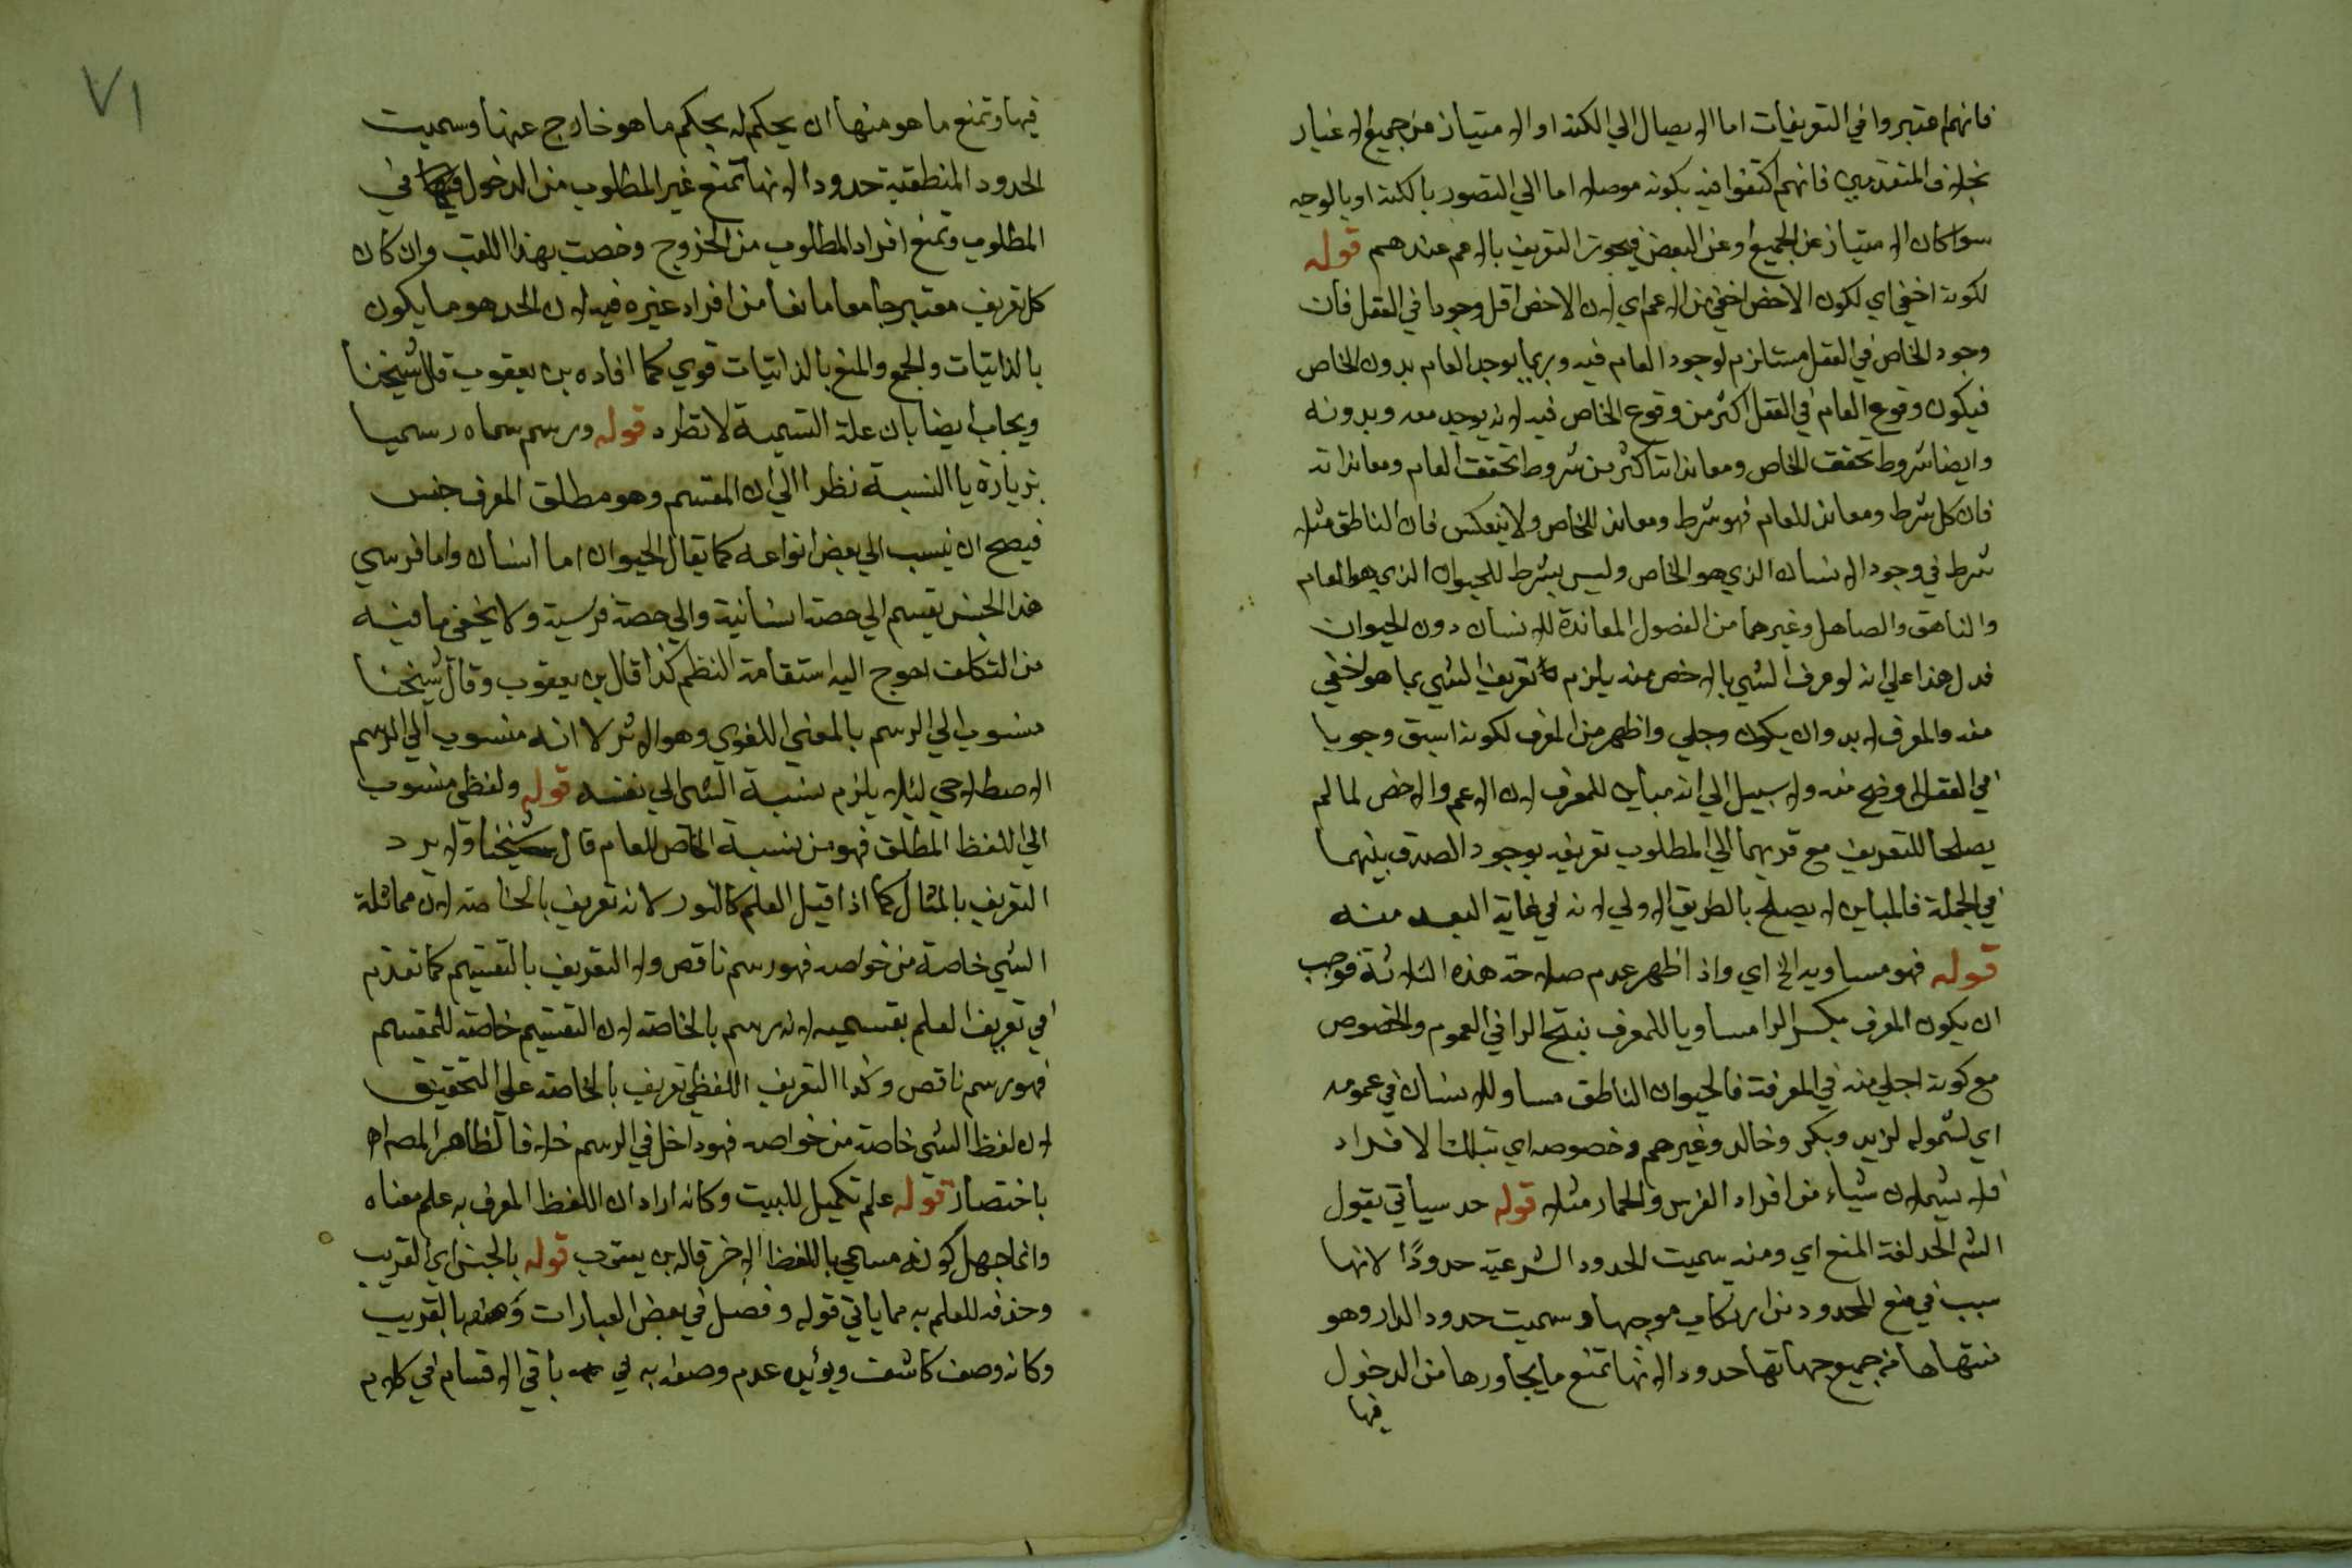 فانهم اعتبروا في التعريفات اما الايصال الي الكنه او الامتياز عن جميع الاغيار
بخلاف المتقدمين فانهم اكتفوا فيه بكونه موصلا اما الي التصور بالكنه او بالوجه
سوا كان الامتياز عن الجميع او عن البعض فيجوز التعريف بالاعم عندهم قوله
لكونه اخفي اي لكون الاخص اخفي من الاعم اي لان الاخص اقل وجودا في العقل فان
وجود الخاص في العقل مستلزم لوجود العام فيه وربما يوجد العام بدون الخاص
فيكون وقوع العام في العقل اكثر من وقوع الخاص فيه لانه يوجد معه وبدونه
وايضا شروط تحقق الخاص ومعانداته اكثر من شروط تحقق العام ومعانداته
فان كل شرط ومعاند للعام فهو شرط ومعاند للخاص ولا ينعكس فان الناطق مثلا
شرط في وجود الانسان الذي هو الخاص وليس بشرط للحيوان الذي هو العام
والناهق والصاهل وغيرهما من الفصول المعاندة للانسان دون الحيوان
فدل هذا علي انه لو عرف الشي بالاخص منه يلزم تعريف الشي بما هو اخفي
منه والمعرف لابد وان يكون وجلي واظهر من المعرف لكونه اسبق وجوبا
في العقل اوضح منه ولا سبيل الي انه مباين للمعرف لان الاعم والاخص لما لم
يصلحا للتعريف مع قربهما الي المطلوب تعريفه بوجود الصدق بينهما
في الجملة فالمباين لا يصلح بالطريق الاولي لانه في غاية البعد منه
قوله فهو مساويه الخ اي واذا ظهر عدم صلاحة هذه الثلاثة فوجب
ان يكون المعرف بكسر الرا مساويا للمعرف بفتح الرا في العموم والخصوص
مع كونه اجلي منه في المعرفة فالحيوان الناطق مساو للانسان في عمومه
اي لشموله لزيد وبكر وخالد وغيرهم وخصوصه اي بتلك الافراد
فلا يشملان شياء من افراد الفرس والحمار مثلا قوله حد سياتي يقول
الشم الحد لغة المنع اي ومنه سميت الحدود الشرعية حدودًا لانها
سبب في منع المحدود من ارتكاب موجبها وسميت حدود الدار وهو
منتهاها من جميع جهاتها حدودا لانها تمنع ما يجاورها من الدخول
فيها
٧١
فيها وتمنع ما هو منها ان يحكم له بحكم ما هو خارج عنها وسميت
الحدود المنطقية حدودا لانها تمنع غير المطلوب من الدخول في
المطلوب وتمنع افراد المطلوب من الخروج وخصت بهذا اللقب وان كان
كل تعريف معتبر جامعا مانعا من افراد غيره فيه لان الحد هو ما يكون
بالذاتيات والجمع والمنع بالذاتيات قوي كما افاده بن يعقوب قال شيخنا
ويجاب ايضا بان علة التسمية لا تطرد قوله ورسم سماه رسميا
بزيادة يا النسبة نظرا الي ان المقسم وهو مطلق المعرف جنس
فيصح ان ينسب الي بعض انواعه كما يقال الحيوان اما انسان واما فرسي
هذا الجنس يقسم الي حصة انسانية والي حصة فرسية ولا يخفي ما فيه
من التكلف احوج اليه استقامة النظم كذا قال بن يعقوب وقال شيخنا
منسوب الي الرسم بالمعني اللغوي وهو الاثر لا انه منسوب الي الرسم
الاصطلاحي لئلا يلزم نسبة الشي الي نفسه قوله ولفظي منسوب
الي اللفظ المطلق فهو من نسبة الخاص للعام قال شيخنا ولا يرد
التعريف بالمثال كما اذا قيل العلم كالنور لانه تعريف بالخاصة لان مماثلة
الشي خاصة من خواصه فهو رسم ناقص ولا التعريف بالتقسيم كما تقدم
في تعريف العلم بقسميه لانه رسم بالخاصة لان التقسيم خاصة للمقسم
فهو رسم ناقص وكذا التعريف اللفظي تعريف بالخاصة علي التحقيق
لان لفظ الشي خاصة من خواصه فهو داخل في الرسم خلافا لظاهر المص اه
باختصار قوله علم تكميل للبيت وكانه اراد ان اللفظ المعرف به علم معناه
وانما جهل كونه مسمي باللفظ الاخر قاله بن يعقوب قوله بالجنس اي القريب
وحذفه للعلم به مما ياتي قوله وفصل في بعض العبارات وصفه بالقريب
وكانه وصف كاشف ويؤيده عدم وصفه به في باقي الاقسام في كلام